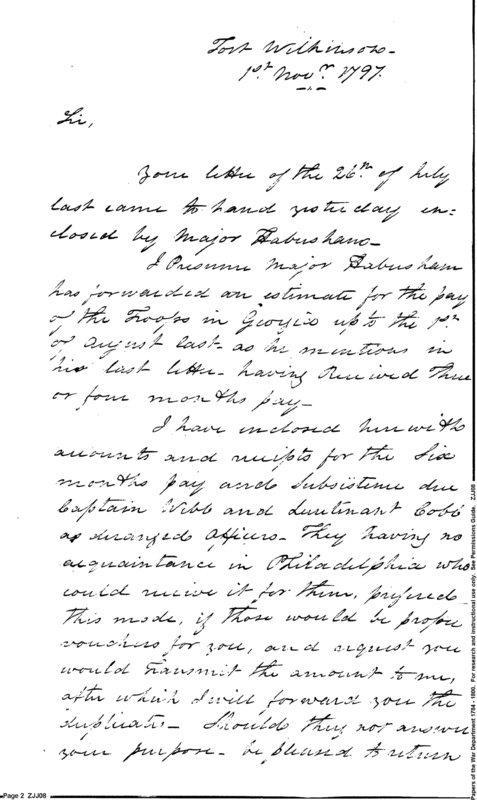 Fort Wilkinson -
1st Novr. 1797.
Sir,
Your letter of the 26th of July
last came to hand yesterday en=
closed by Major Habersham -
I Presume Major Habersham
has forwarded an estimate for the pay
of the Troops in Georgia up to the 1st
of August last - as he mentions in
his last letter - having Received Three
or four months pay -
I have inclosed herewith
accounts and receipts for the Six
months pay and Subsistence due
Captain Webb and Lieutenant Cobb
as deranged Officers - They having no
acquaintance in Philadelphia who
could receive it for them, prefered
this mode, if those would be proper
vouchers for you, and request you
would Transmit the amount to me,
after which I will forward you the
duplicates - Should they not answer
your purpose - be pleased to return
Page 2 ZJJ08
Papers of the War Department 1784 - 1800. For research and instructional use only. See Permissions Guide. ZJJ08